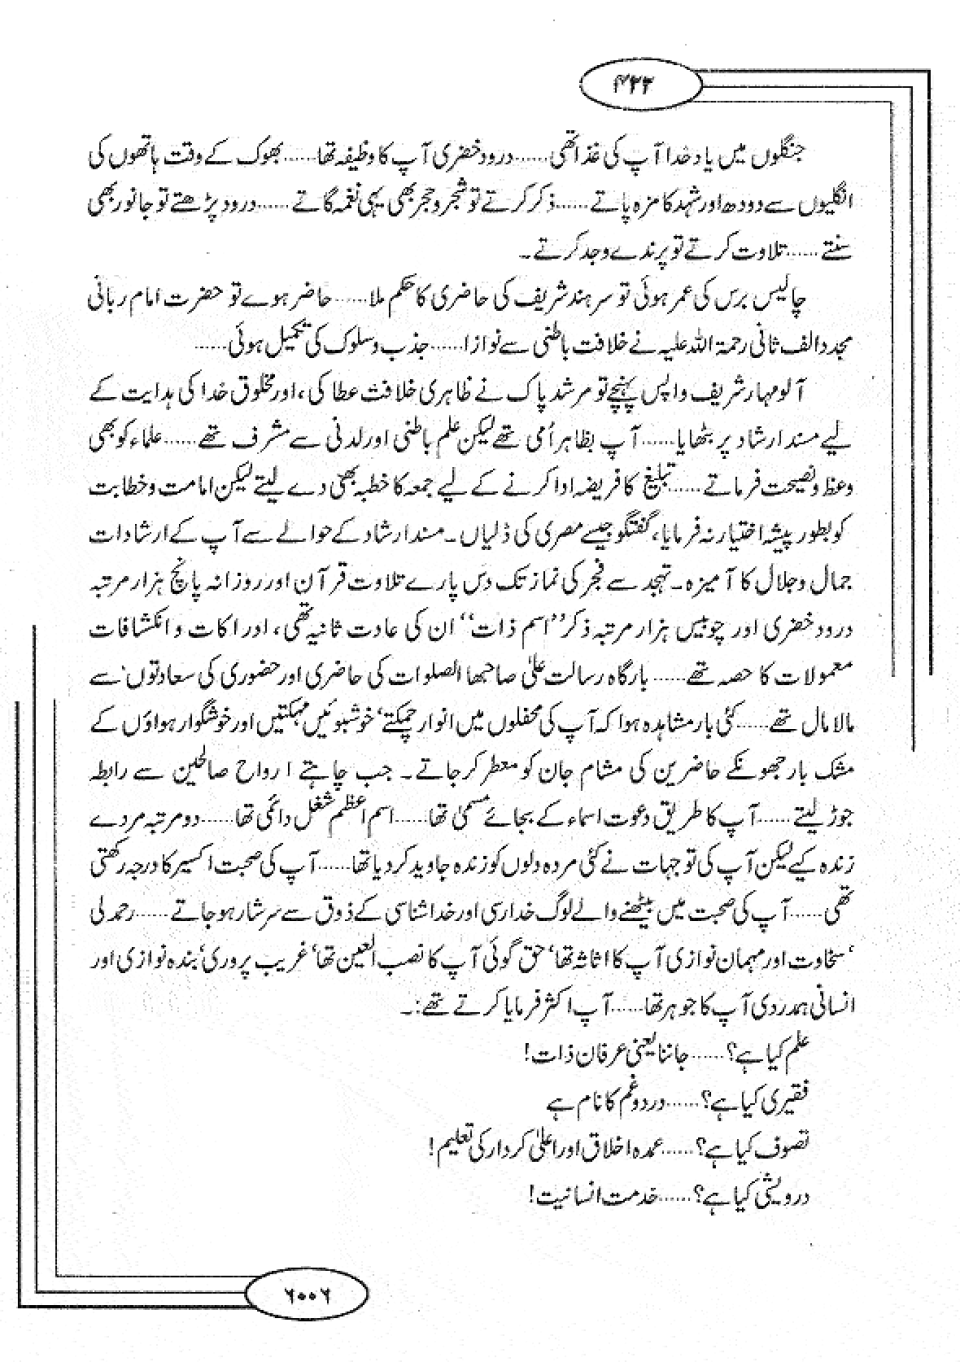 ۴۲۲
جنگلوں میں یاد خدا آپ کی غذا تھی......درود خضری آپ کا وظیفہ تھا......بھوک کے وقت ہاتھوں کی
انگلیوں سے دودھ اور شہد کا مزہ پاتے......ذکر کرتے تو شجر و حجر بھی یہی نغمہ گاتے......درود پڑھتے تو جانور بھی
سنتے......تلاوت کرتے تو پرندے وجد کرتے۔
چالیس برس کی عمر ہوئی تو سرہند شریف کی حاضری کا حکم ملا......حاضر ہوے تو حضرت امام ربانی
مجدد الف ثانی رحمۃ اللہ علیہ نے خلافت باطنی سے نوازا......جذب و سلوک کی تکمیل ہوئی......
آلو مہار شریف واپس پہنچے تو مرشد پاک نے ظاہری خلافت عطا کی، اور مخلوق خدا کی ہدایت کے
لیے مسند ارشاد پر بٹھایا......آپ بظاہر اُمی تھے لیکن علم باطنی اور لدنی سے مشرف تھے......علماء کو بھی
وعظ و نصیحت فرماتے......تبلیغ کا فریضہ ادا کرنے کے لیے جمعہ کا خطبہ بھی دے لیتے لیکن امامت و خطابت
کو بطور پیشہ اختیار نہ فرمایا، گفتگو جیسے مصری کی ڈلیاں۔ مسند ارشاد کے حوالے سے آپ کے ارشادات
جمال و جلال کا آمیزہ۔ تہجد سے فجر کی نماز تک دس پارے تلاوت قرآن اور روزانہ پانچ ہزار مرتبہ
درود خضری اور چوبیس ہزار مرتبہ ذکر ’’اسم ذات‘‘ ان کی عادت ثانیہ تھی، ادراکات و انکشافات
معمولات کا حصہ تھے......بارگاہ رسالت علیٰ صاحبھا الصلوات کی حاضری اور حضوری کی سعادتوں سے
مالا مال تھے......کئی بار مشاہدہ ہوا کہ آپ کی محفلوں میں انوار چمکتے‘ خوشبوئیں مہکتیں اور خوشگوار ہواؤں کے
مشک بار جھونکے حاضرین کی مشام جان کو معطر کر جاتے۔ جب چاہتے ارواح صالحین سے رابطہ
جوڑ لیتے......آپ کا طریق دعوت اسماء کے بجائے مسمیٰ تھا......اسم اعظم شغل دائمی تھا......دو مرتبہ مردے
زندہ کیے لیکن آپ کی توجہات نے کئی مردہ دلوں کو زندہ جاوید کر دیا تھا......آپ کی صحبت اکسیر کا درجہ رکھتی
تھی......آپ کی صحبت میں بیٹھنے والے لوگ خدا رسی اور خدا شناسی کے ذوق سے سرشار ہو جاتے......رحمدلی
‘سخاوت اور مہمان نوازی آپ کا اثاثہ تھا‘ حق گوئی آپ کا نصب العین تھا‘ غریب پروری‘ بندہ نوازی اور
انسانی ہمدردی آپ کا جوہر تھا......آپ اکثر فرمایا کرتے تھے:۔
علم کیا ہے؟......جاننا یعنی عرفان ذات!
فقیری کیا ہے؟......درد و غم کا نام ہے
تصوف کیا ہے؟......عمدہ اخلاق اور اعلیٰ کردار کی تعلیم!
درویشی کیا ہے؟......خدمت انسانیت!
۶۰۰۶